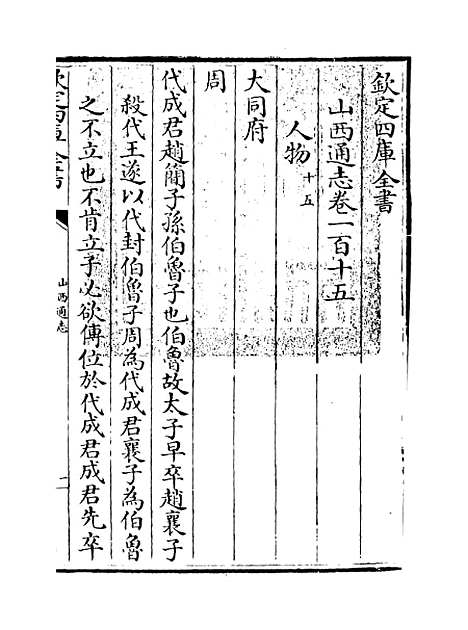 欽定四庫全書
山西通志卷一百十五
人物十五
大同府
周
代成君趙簡子孫伯魯子也伯魯故太子早卒趙襄子
殺代王遂以代封伯魯子周為代成君襄子為伯魯
之不立也不肯立子必欲傳位於代成君成君先卒
欽定四庫全書
山西通志
一